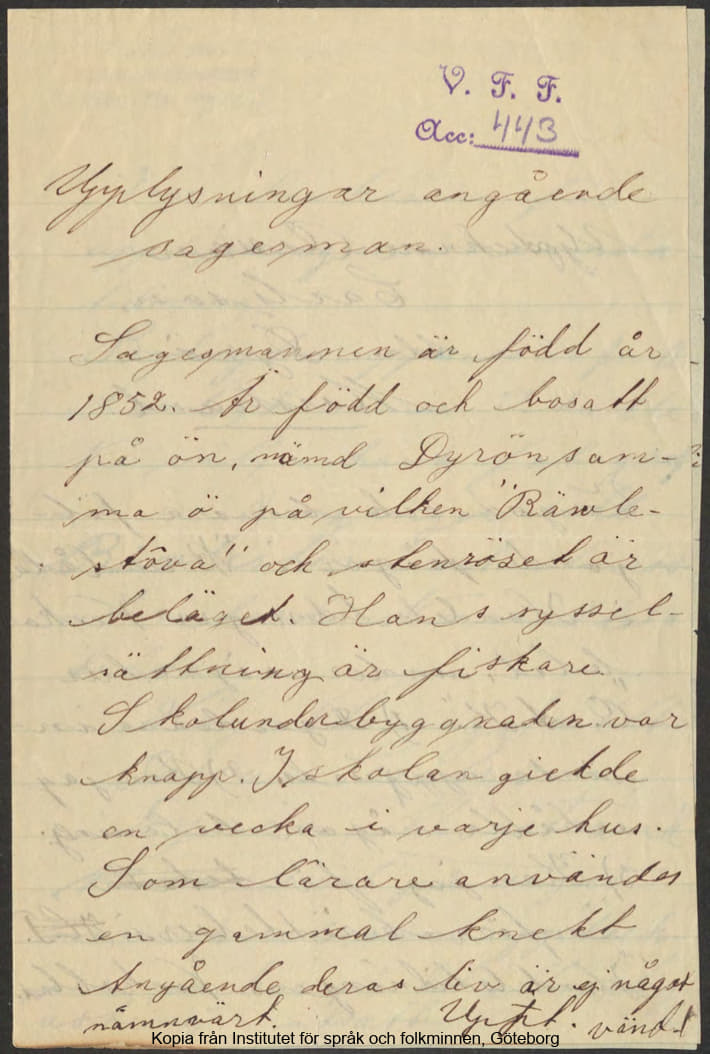 V. F. F.
Acc: 443
Upplysningar angående
sagesman.
Sagesmannen är född år
1852. Är född och bosatt
på ön, nämd Dyrön sam-
ma ö på vilken "Räwle-
stôva" och stenröset är
beläget. Hans syssel-
sättning är fiskare.
Skolunderbyggnaden var
knapp. I skolan gick de
en vecka i varje hus.
Som lärare användes
en gammal knekt
Angående deras liv är ej något
nämnvärt. vänd
Kopia från Institutet för språk och folkminnen, Göteborg